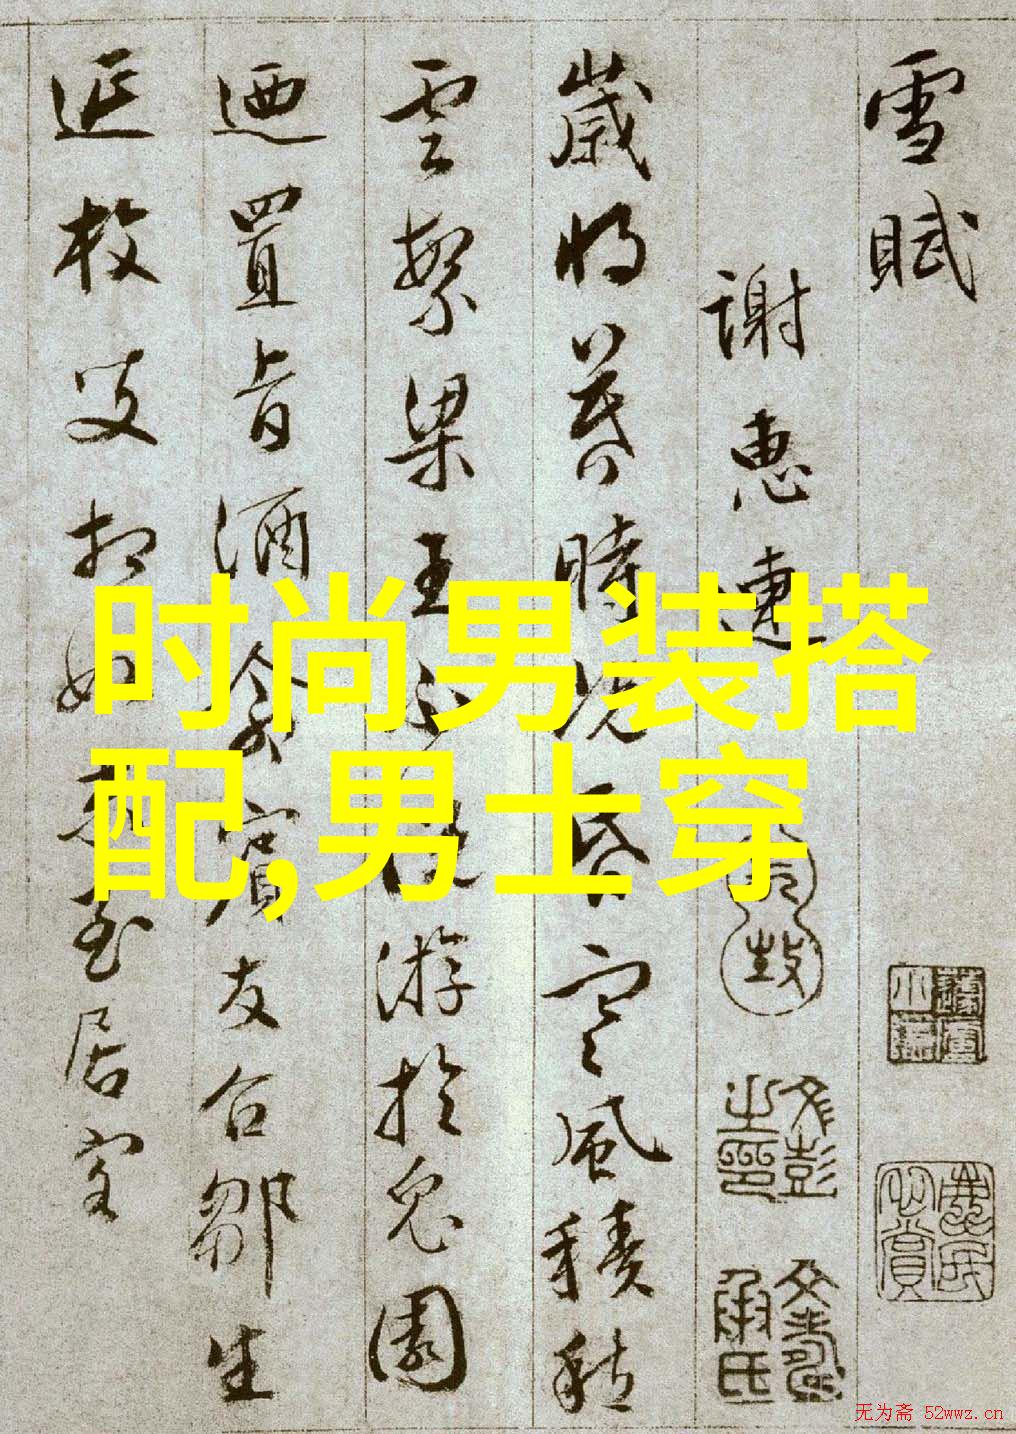 雪賦
謝惠連
歲將暮時既昏寒風積愁
雲繁梁王不悅游於兔園
迺置旨酒命賓友召鄒生
延枚叟相如末至居客
时尚男装搭
配,男士穿
文彭
之印
无为斋 52wwz.cn